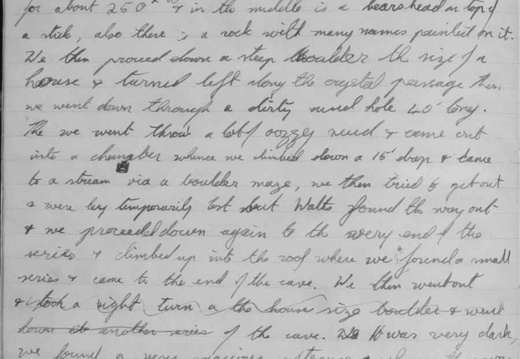 for about 250' & in the middle is a bears head on top of
a stick, also there is a rock with many names painted on it.
We then proceed down a steep boulder the size of a
house & turned left along the crystal passage then
we went down through a dirty mud hole 40' long.
The we went throw a lot of oozzy mud & came out
into a chamber whence we climbed down a 15' drop & came
to a stream via a boulder maze, we then tried to get out
& were temporarily lost but Walts found the way out
& we proceeded down again to the very end of the
series & climbed up into the roof where we found a small
series & came to the end of the cave. We then went out
& took a right turn a the house size boulder & went
down another series of the cave. It was very dark,
we found a very